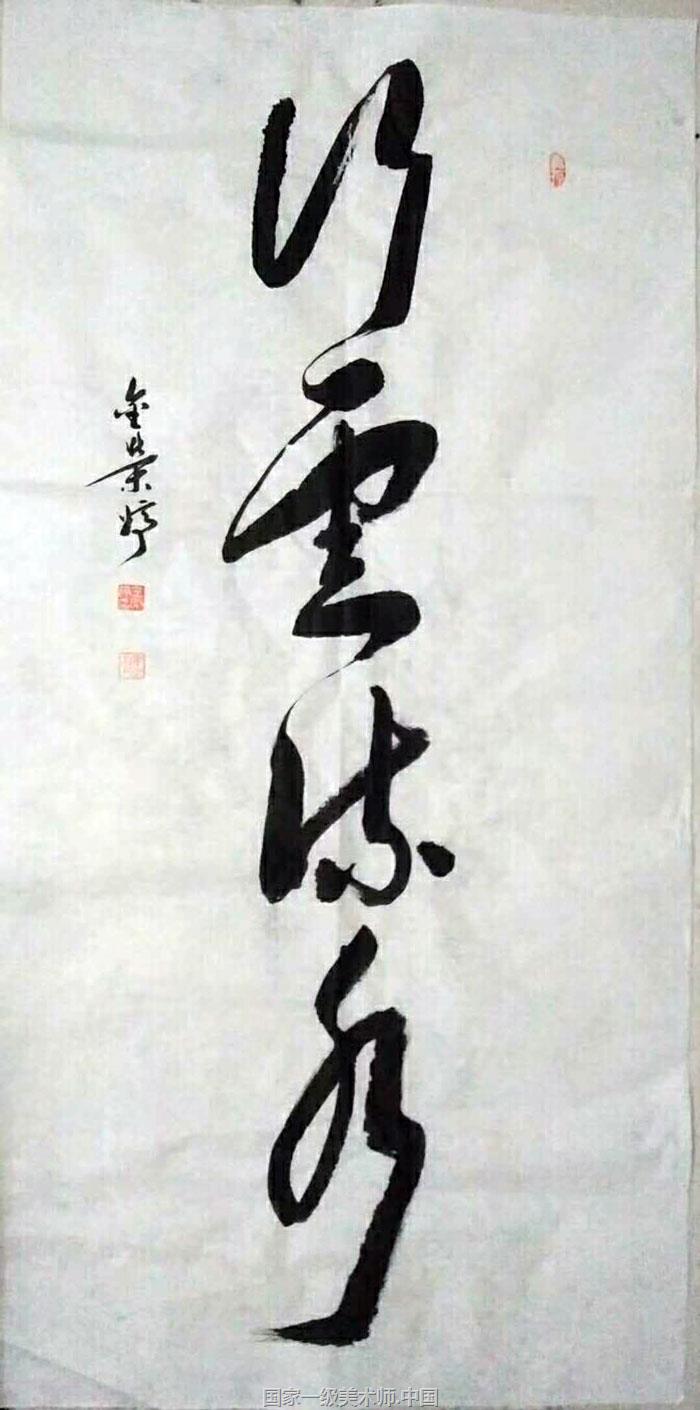 行雲流水
金榮婷
国家一级美术师.中国